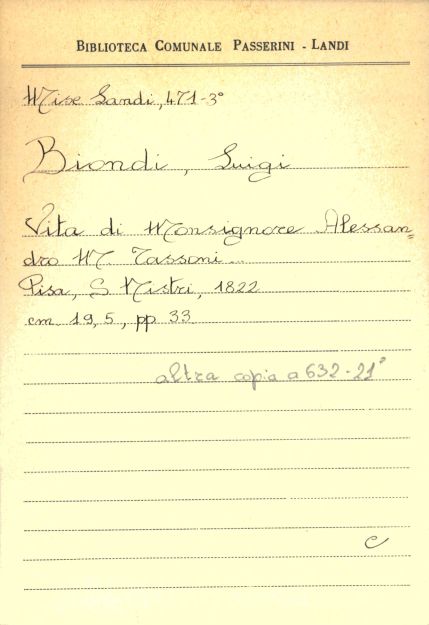 BIBLIOTECA COMUNALE PASSERINI - LANDI
Misc Landi, 471-3°
Biondi, Luigi
Vita di Monsignore Alessan=
dro M. Tassoni...
Pisa, S. Nistri, 1822
cm. 19,5, pp 33
altra copia a 632-21°
C